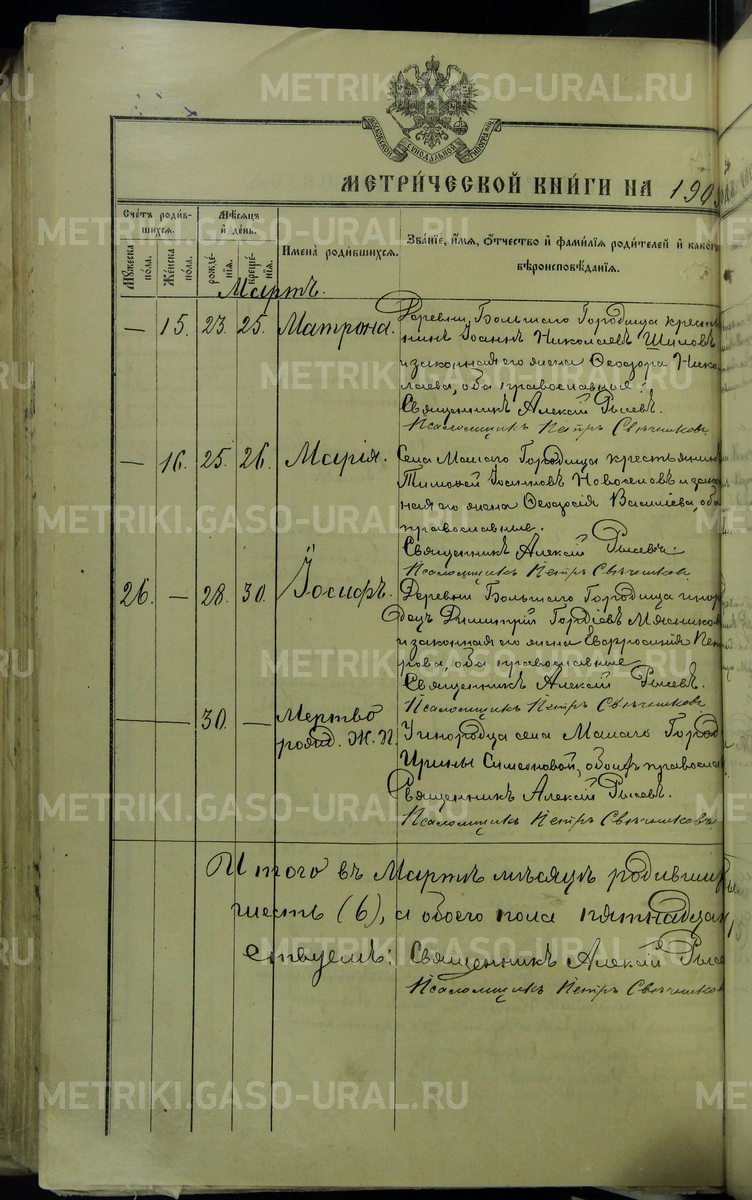 METRIKI.GASO-URAL.RU
МОСКОВСКОЙ СѴНОДАЛЬНОЙ ТИПОГРАФІИ
МЕТРИ́ЧЕСКОЙ КНИ́ГИ НА 190
Сче́тъ роди́в-
шихся.
Мꙋ́жеска
по́ла.
Же́нска
по́ла.
Мѣ́сяцъ
и҆ де́нь.
рожде́-
нія.
креще́-
нія.
И҆мена̀ роди́вшихся.
Зва́ніе, и҆́мя, ѻ҆́тчество и҆ фами́лїя роди́телей и҆ како́г
вѣроисповѣ́данїя.
Мартъ.
— 15. 23. 25. Матрона.
Деревни Большаго Городища крест
нинъ Іоаннъ Николаевъ Шиловъ
и законная его жена Ѳеодора Нико
лаева, оба православные.
Священникъ Алексій Рысевъ.
Псаломщикъ Петръ Свѣчниковъ.
— 16. 25. 26. Марія.
Села Малаго Городища крестьянинъ
Тимоѳей Іоанновъ Новоселовъ и закон
ная его жена Ѳеодосія Василіева, оба
православные.
Священникъ Алексій Рысевъ.
Псаломщикъ Петръ Свѣчниковъ.
26. — 28. 30. Іосифъ.
Деревни Большаго Городища инор
децъ Димитрій Гордіевъ Мясников
и законная его жена Евфросинія Пет
рова, оба православные
Священникъ Алексій Рысевъ.
Псаломщикъ Петръ Свѣчниковъ
— 30. — Мертво
рожд. Ж. П.
У инородца села Малаго Город
Ирины Симеоновой, обоихъ правосла
Священникъ Алексій Рысевъ.
Псаломщикъ Петръ Свѣчниковъ
Итого въ Мартѣ мѣсяцѣ родивши
шесть (6), а обоего пола пятнадца
ствуемъ: Священникъ Алексій Рысе
Псаломщикъ Петръ Свѣчников